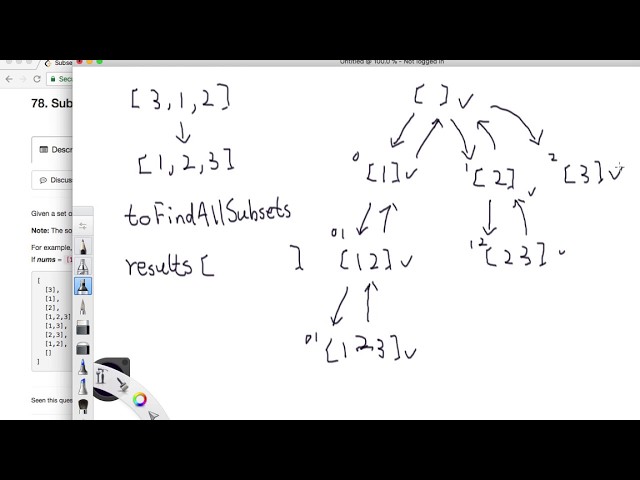 Untitled @ 100.0 % - Not logged in
Subse
Secu
78. Sub
Descr
Discus
Given a set o
Note: The so
For example,
If nums = [1
[
[3],
[1],
[2],
[1,2,3],
[1,3],
[2,3],
[1,2],
[]
]
Seen this ques
[3,1,2]
[1,2,3]
toFindAllSubsets
results [ ]
[ ]
0 [1]
1 [2]
2 [3]
01 [12]
12 [23]
01 [123]